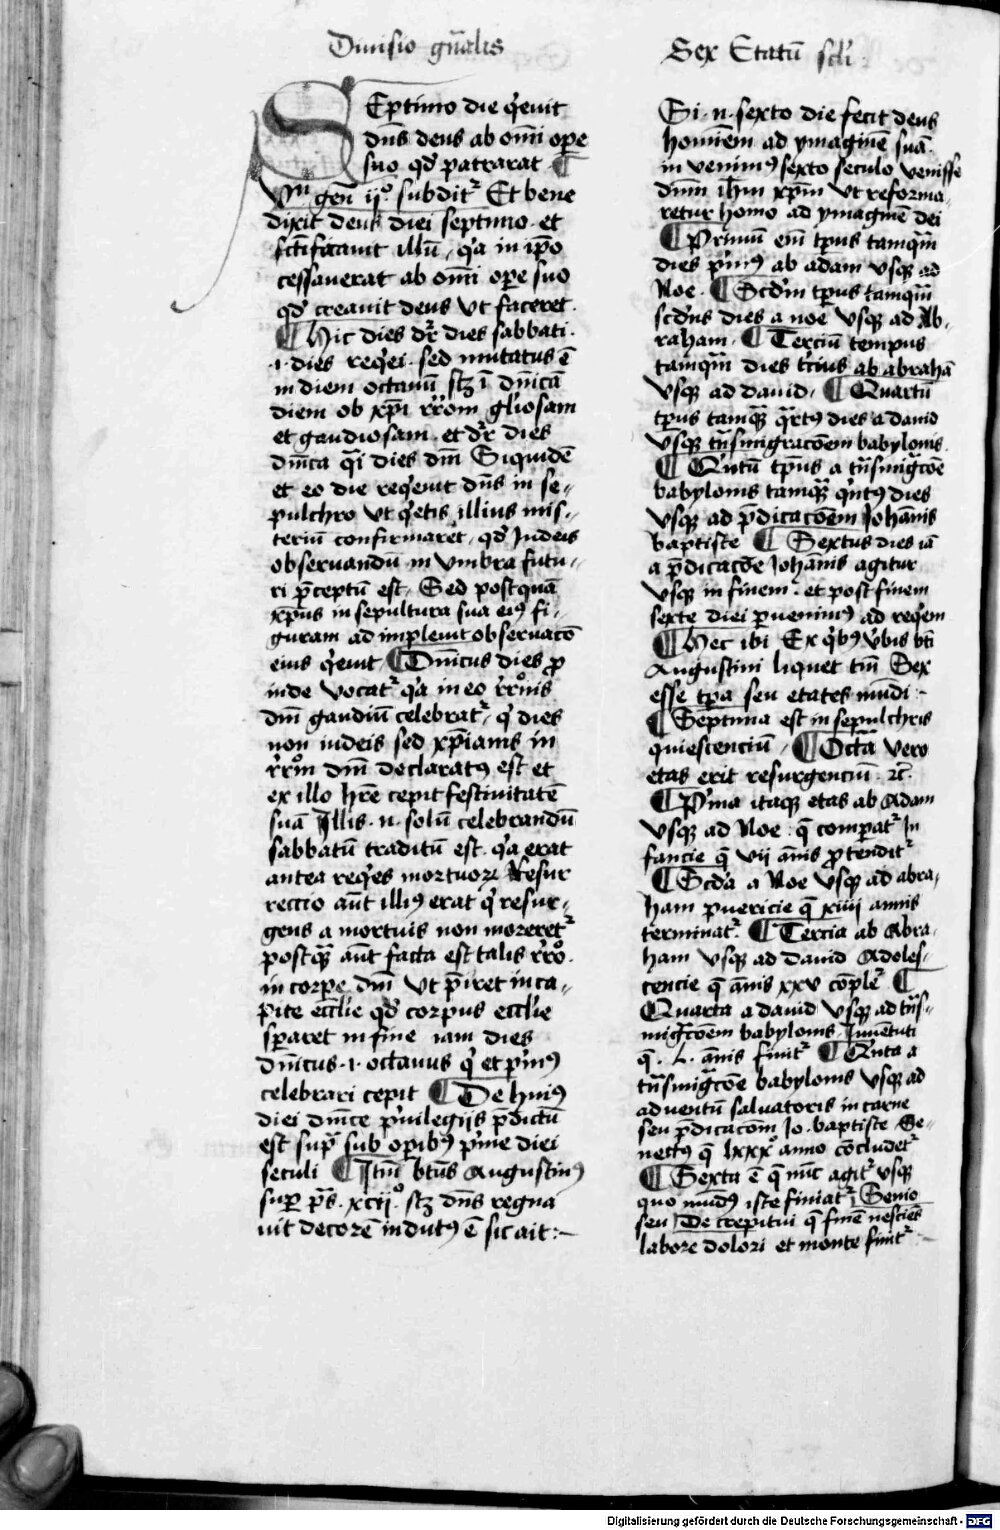 Diuisio gn̄alis
Sex Etatū scl'i
SEptimo die q'euit
dn̄s deus ab om̄i ope
suo qd' patrarat ¶
Vn̄ gen̄ ijº subditʳ Et bene
dixit deus diei septimo et
sctīficauit illū, q'a in ip̄o
cessauerat ab om̄i ope suo
qd' creauit deus Vt faceret
¶ Hic dies dr̄ dies sabbati
·i· dies req'ei· sed mutatus ē
in diem octauū sʒ ī dn̄icā
diem ob xp̄i rr̄om gl'iosam
et gaudiosam· et dr̄ dies
dn̄ica q̄i dies dn̄i Siquidē
et eo die req'euit dn̄s in se-
pulchro Vt q'etis illius mis-
terium confirmaret, qd' Iudeis
obseruandū in Vmbra futu-
ri p̄ceptū est, Sed postquā
xp̄us in sepultura sua eiꝰ fi-
guram adimpleuit obseruacō
eius q'euit ¶ Dn̄icus dies p
inde Vocatʳ q'a in eo rr̄onis
dn̄i gaudiū celebratʳ, q' dies
non iudeis sed xp̄ianis in
rr̄om dn̄i declaratꝰ est et
ex illo hr̄e cepit festiuitatē
suā Illis ·n· solū celebrandū
sabbatū traditū est q'a erat
antea req'es mortuoꝝ Resur
rectio aūt illiꝰ erat q' resur-
gens a mortuis non moreretʳ
postq̄ʒ aūt facta est talis rr̄o
in corpe dn̄i Vt p̄iret in ca-
pite eccl'ie qd' corpus eccl'ie
sparet in fine iam dies
dn̄icus ·i· octauus q' et p'mꝰ
celebrari cepit ¶ De huiꝰ
diei dn̄ice p'uilegijs p̄dictū
est sup̄ sub opibꝰ p'me diei
seculi ¶ Itm̄ bt̄us Augustinꝰ
sup ps̄ ·xcijº sʒ dn̄s regna
uit decorē indutꝰ ē sic ait:-
Si ·n· sexto die fecit deus
homīem ad ymaginē suā
in venimꝰ sexto seculo venisse
dn̄m ih̄m xp̄m Vt reforma-
retur homo ad ymaginē dei
¶ Primū em̄ tp̄us tamq̄m
dies p'mꝰ ab adam Vsqʒ ad
Noe· ¶ Scd'm tp̄us tamq̄m
scd'us dies a noe Vsqʒ ad Ab-
raham· ¶ Terciū tempus
tamq̄m dies t'cius ab abrahā
Vsqʒ ad dauid· ¶ Quartū
tp̄us tamq̄ʒ q̄rtꝰ dies a dauid
Vsqʒ tn̄smigracōem babylonis
¶ Qn̄tū tp̄us a tn̄smigcōe
babylonis tamq̄ʒ q'ntꝰ dies
Vsqʒ ad p̄dicacōem Ioh̄anis
baptiste ¶ Sextus dies iā
a p̄dicacōe Ioh̄anis agitur
Vsqʒ in finem· et post finem
sexte diei puenimꝰ ad req'em
¶ Hec ibi Ex q'bꝰ v'bis bt̄i
Augustini liquet tm̄ Sex
esse tp̄a seu etates mūdi:-
¶ Septima est in sepulchris
quiescenciū, ¶ Octā vero
etas erit resurgenciū ⁊c̄·
¶ P'ma itaqʒ etas ab Adam
Vsqʒ ad Noe q̄ compatʳ In
fancie q̄ vij an̄is ptenditʳ
¶ Scd'a a Noe Vsqʒ ad abra-
ham puericie q̄ xiiij annis
terminatʳ ¶ Tercia ab Abra-
ham Vsqʒ ad dauid Adoles-
cencie q̄ an̄is xxv cōpletʳ ¶
Quarta a dauid Vsqʒ ad tn̄s-
migcōem babylonis Iuuētuti
q̄ ·L· an̄is finitʳ ¶ Qn̄ta a
tn̄smigcōe babylonis Vsqʒ ad
aduentū saluatoris in carne
seu p̄dicacōm Io· baptiste Se-
nectꝰ q̄ lxxxº anno cōcludetʳ
¶ Sexta ē q̄ nūc agitʳ Vsqʒ
quo mūdꝰ iste finiatʳ Senio
seu De crepitui q̄ finē nesciēs
labore dolori et morte finitʳ:-
Digitalisierung gefördert durch die Deutsche Forschungsgemeinschaft - DFG